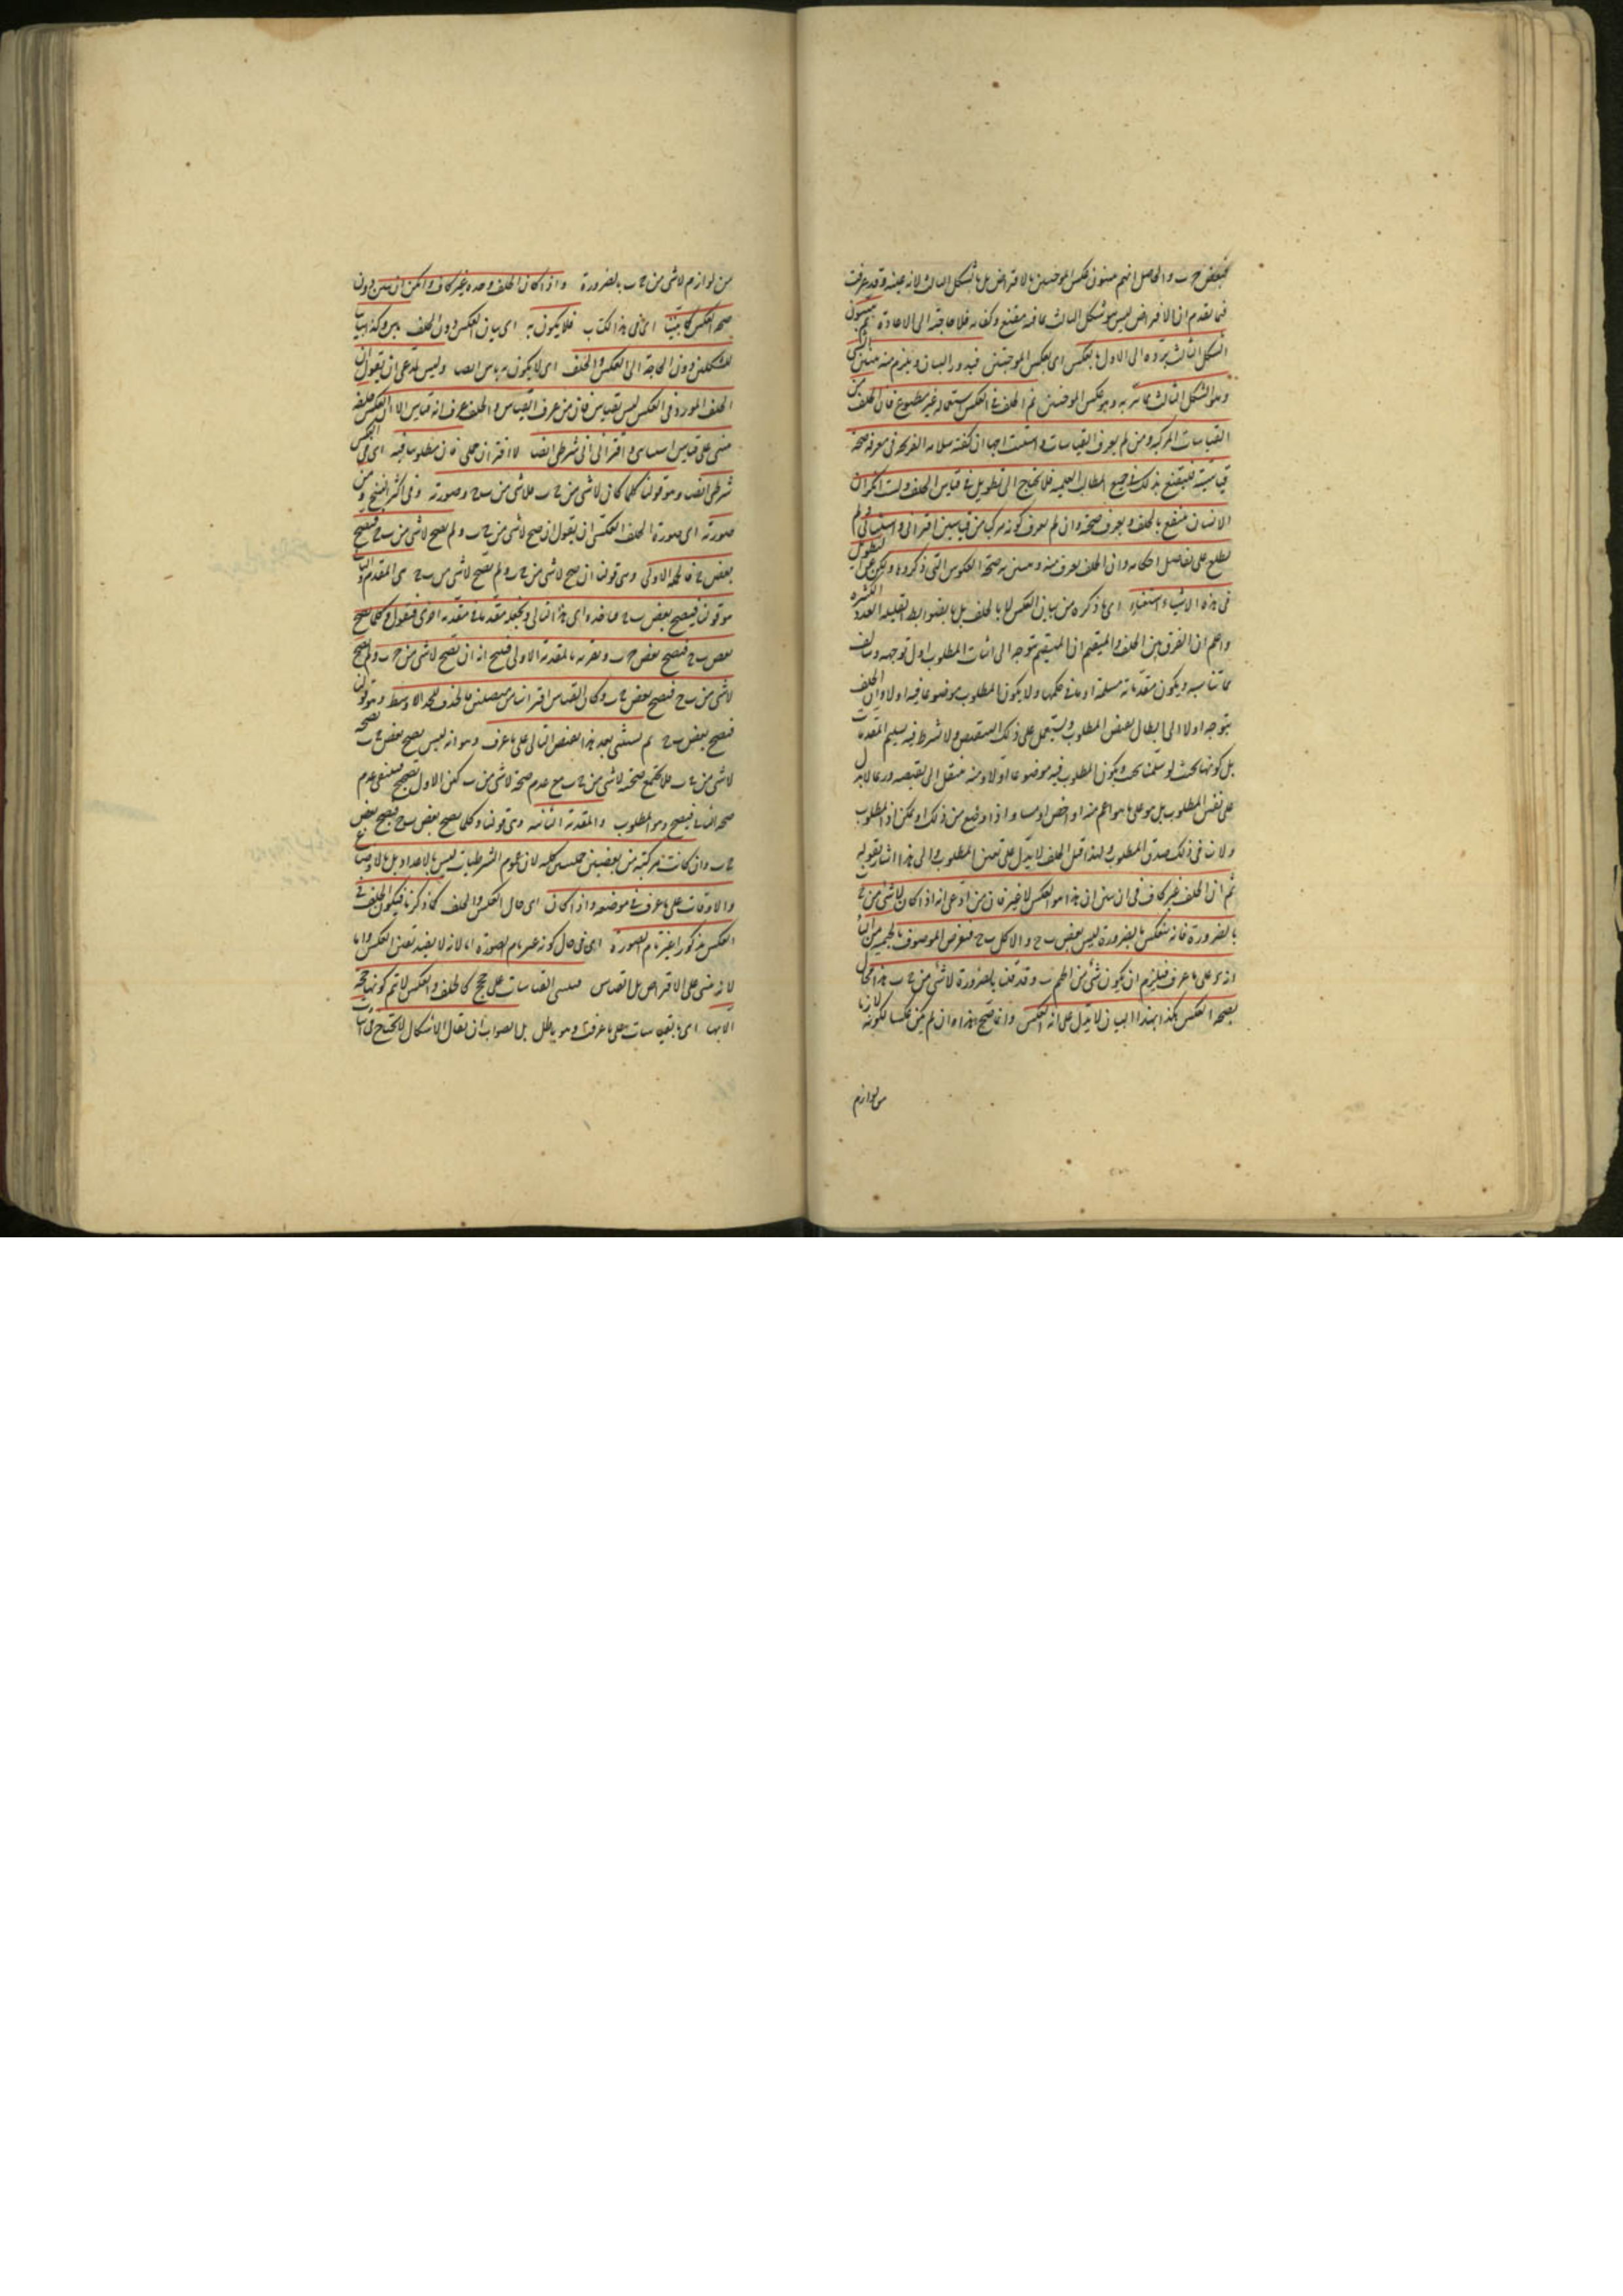 فبعض ج ب والحاصل انهم يبينون عكس الموجبتين بالافتراض بل بالشكل الثالث لانه عينه وقد عرفت
فيما تقدم ان الافتراض ليس هو شكل الثالث بما فيه مقنع وكفاية فلا حاجة الى الاعادة ثم يبينون
الشكل الثالث برده الى الاول بالعكس اى بعكس الموجبتين فيدور البيان ويلزم منه تبيين الشئ
وهو الشكل الثالث بما تبين به وهو عكس الموجبتين ثم الخلف فى العكس استعماله غير مطبوع فان الخلف من
القياسات المركبة ومن لم يعرف القياسات واستنتاجها ان كفته سلامة القريحة فى معرفة صحة
قياسيته فليقنع بذلك فى جميع المطالب العلمية فلا يحتاج الى تطويل فى قياس الخلف ولست انكر ان
الانسان ينتفع بالخلف ويعرف صحته وان لم يعرف كونه مركبا من قياسين اقترانى واستثنائى ولم
يطلع على تفاصيل احكامه وان الخلف يعرف منه ويبين به صحة العكوس التى ذكروها ولكن عن التطويل
فى هذه الاشياء استغناء اى بما ذكره من بيان العكس لا بالخلف بل بالضوابط القليلة العدد الكثيرة
واعلم ان الفرق بين الخلف والمستقيم ان المستقيم يتوجه الى اثبات المطلوب اول توجهه ويتالف
مما يناسبه ويكون مقدماته مسلمة او ما فى حكمها ولا يكون المطلوب موضوعا فيه اولا وان الخلف
يتوجه اولا الى ابطال نقيض المطلوب ويشتمل على ذلك النقيض ولا يشترط فيه تسليم المقدمات
بل كونها بحيث لو سلمت انتجت ويكون المطلوب فيه موضوعا اولا ومنه ينتقل الى نقيضه وربما لا يدل
على نفس المطلوب بل هو على ما هو اعم منه او اخص او مساو اذا وضع من ذلك ولكن اذ المطلوب
ولان فى ذلك صدق المطلوب ولهذا قيل الخلف لا يدل على تعين المطلوب والى هذا اشار بقوله
ثم ان الخلف غير كاف فى ان يبين ان هذا هو العكس لا غير فان من ادعى انه اذا كان لا شئ من ج ب
بالضرورة فانه ينعكس بالضرورة ليس بعض ب ج والا كل ب ج فنفرض الموصوف بالجيمية من الباء
د وهو على ما عرف فيلزم ان يكون شئ من الجيم ب وقد قلنا بالضرورة لا شئ من ج ب هذا محال
بصحة العكس هكذا بهذا البيان لا يدل على انه العكس وانما صح هذا وان لم يكن عكسا لكونه لازما
من لوازم
من لوازم لا شئ من ج ب بالضرورة واذا كان الخلف وحده غير كاف وامكن ان يبين دون
صحة العكس كما بينا اى فى هذا الكتاب فلا يكون به اى بيان العكس دون الخلف باس وكذا بيان
الشكلين دون الحاجة الى العكس والخلف اى لا يكون به باس ايضا وليس لمدعى ان يقول ان
الخلف المورد فى العكس ليس بقياس فان من عرف القياس والخلف عرف انه قياس الا ان العكس خلفه
مبنى على قياس استثنائى واقترانى شرطى ايضا لا اقترانى حملى فان مطلوبنا فيه اى فى العكس
شرطى ايضا وهو قولنا كلما كان لا شئ من ج ب فلا شئ من ب ج وصورته وفى اكثر النسخ ومن
صورته اى صورة الخلف العكسى ان يقول ان صح لا شئ من ج ب ولم يصح لا شئ من ب ج فيصح
بعض ب ج فالجملة الاولى وهى قولنا ان صح لا شئ من ج ب ولم يصح لا شئ من ب ج هى المقدم والتالى
هو قولنا فيصح بعض ب ج فناخذه اى هذا التالى ونجعله مقدما فى مقدمة اخرى فنقول وكلما يصح
بعض ب ج فيصح بعض ج ب ونقرنه بالمقدمة الاولى فينتج انه ان يصح لا شئ من ج ب ولم يصح
لا شئ من ب ج فيصح بعض ج ب وكان القياس اقترانيا من متصلتين بالحذف للحد الاوسط وهو قولنا
فيصح بعض ب ج ثم يستثنى بعد هذا نقيض التالى على ما عرف وهو انه ليس يصح بعض ج ب لصحة
لا شئ من ج ب فلا يجتمع صحة لا شئ من ج ب مع عدم صحة لا شئ من ب ج لكن الاول صحيح فينتفى عدم
صحة الثانى فيصح وهو المطلوب والمقدمة الثانية وهى قولنا وكلما يصح بعض ب ج فيصح بعض
ج ب وان كانت مركبة من بعضيتين حمليتين كلية لان عموم الشرطيات ليس بالاعداد بل بالاوضاع
والاوقات على ما عرف فى موضعه واذا كان اى حال العكس والخلف كما ذكرنا فيكون الخلف فى
العكس مذكورا غير تام الصورة اى فى حال كونه غير تام الصورة اما لانه لا يفيد تعين العكس واما
لانه مبنى على الافتراض بل القياس فيبتنى القياسات على حجج كالخلف والعكس لا تتم كونها حجة
الا بها اى بالقياسات على ما عرفت وهو باطل بل الصواب ان يقال الاشكال لا يحتاج فى اثبات